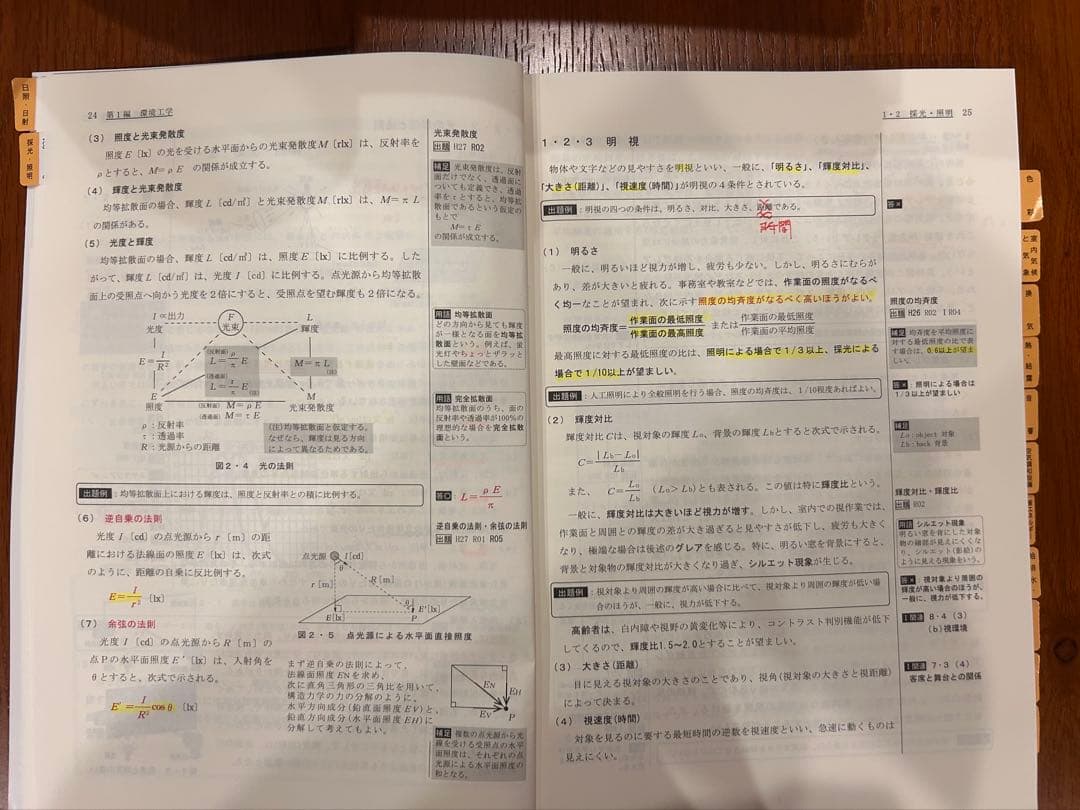 日照・日射
採光・照明
24 第1編 環境工学
(3) 照度と光束発散度
照度E〔lx〕の光を受ける水平面からの光束発散度M〔rlx〕は、反射率を
ρとすると、M=ρE の関係が成立する。
(4) 輝度と光束発散度
均等拡散面の場合、輝度L〔cd/㎡〕と光束発散度M〔rlx〕は、M=πL
の関係がある。
(5) 光度と輝度
均等拡散面の場合、輝度L〔cd/㎡〕は、照度E〔lx〕に比例する。した
がって、輝度L〔cd/㎡〕は、光度I〔cd〕に比例する。点光源から均等拡散
面上の受照点へ向かう光度を2倍にすると、受照点を望む輝度も2倍になる。
I∝出力
光度
F
光束
L
輝度
E=I/R²
(反射面)
L=ρ/π E
(透過面)
L=τ/π E
M=πL
(注)
E
照度
(反射面) M=ρE
(透過面) M=τE
M
光束発散度
ρ:反射率
τ:透過率
R:光源からの距離
(注)均等拡散面と仮定する。
なぜなら、輝度は見る方向
によって異なるためである。
図2・4 光の法則
出題例:均等拡散面上における輝度は、照度と反射率との積に比例する。
(6) 逆自乗の法則
光度I〔cd〕の点光源からr〔m〕の距
離における法線面の照度E〔lx〕は、次式
のように、距離の自乗に反比例する。
E=I/r² 〔lx〕
(7) 余弦の法則
光度I〔cd〕の点光源からR〔m〕の
点Pの水平面照度E′〔lx〕は、入射角を
θとすると、次式で示される。
E′=I/R² cosθ 〔lx〕
点光源 I〔cd〕
θ
r〔m〕
R〔m〕
θ
E〔lx〕
E′〔lx〕
P
図2・5 点光源による水平面直接照度
まず逆自乗の法則によって、
法線面照度ENを求め、
次に直角三角形の三角比を用いて、
構造力学の力の分解のように、
水平方向成分(鉛直面照度EV)と、
鉛直方向成分(水平面照度EH)に
分解して考えてもよい。
EN
EH
EV
P
光束発散度
出題 H27 R02
補足 光束発散度は、反射
面だけでなく、透過面に
ついても定義でき、透過
率をτとすると、均等拡
散面であるという仮定の
もとで
M=τE
の関係が成立する。
用語 均等拡散面
どの方向から見ても輝度
が一様となる面を均等拡
散面という。例えば、蛍
光灯やちょっとザラッと
した壁面などである。
用語 完全拡散面
均等拡散面のうち、面の
反射率や透過率が100%の
理想的な場合を完全拡散
面という。
答○ L=ρE/π
逆自乗の法則・余弦の法則
出題 H27 R01 R05
補足 複数の点光源から光
線を受ける受照点の水平
面照度は、それぞれの点
光源による水平面照度の
和となる。
1・2 採光・照明 25
1・2・3 明 視
物体や文字などの見やすさを明視といい、一般に、「明るさ」、「輝度対比」、
「大きさ(距離)」、「視速度(時間)」が明視の4条件とされている。
出題例:明視の四つの条件は、明るさ、対比、大きさ、距離である。
時間
(1) 明るさ
一般に、明るいほど視力が増し、疲労も少ない。しかし、明るさにむらが
あり、差が大きいと疲れる。事務室や教室などでは、作業面の照度がなるべ
く均一なことが望まれ、次に示す照度の均斉度がなるべく高いほうがよい。
照度の均斉度=作業面の最低照度/作業面の最高照度 または 作業面の最低照度/作業面の平均照度
最高照度に対する最低照度の比は、照明による場合で1/3以上、採光による
場合で1/10以上が望ましい。
出題例:人工照明により全般照明を行う場合、照度の均斉度は、1/10程度あればよい。
(2) 輝度対比
輝度対比Cは、視対象の輝度Lo、背景の輝度Lbとすると次式で示される。
C=|Lb−Lo|/Lb
また、 C=Lo/Lb (Lo>Lb)とも表される。この値は特に輝度比という。
一般に、輝度対比は大きいほど視力が増す。しかし、室内での視作業では、
作業面と周囲との輝度の差が大き過ぎると見やすさが低下し、疲労も大きく
なり、極端な場合は後述のグレアを感じる。特に、明るい窓を背景にすると、
背景と対象物の輝度対比が大きくなり過ぎ、シルエット現象が生じる。
出題例:視対象より周囲の輝度が高い場合に比べて、視対象より周囲の輝度が低い場
合のほうが、一般に、視力が低下する。
高齢者は、白内障や視野の黄変化等により、コントラスト判別機能が低下
してくるので、輝度比1.5~2.0とすることが望ましい。
(3) 大きさ(距離)
目に見える視対象の大きさのことであり、視角(視対象の大きさと視距離)
によって決まる。
(4) 視速度(時間)
対象を見るのに要する最短時間の逆数を視速度といい、急速に動くものは
見えにくい。
答×
照度の均斉度
出題 H26 R02 I R04
補足 均斉度を平均照度に
対する最低照度の比で表
す場合は、0.6以上が望ま
しい。
答×:照明による場合は
1/3以上が望ましい
補足
Lo:object 対象
Lb:back 背景
輝度対比・輝度比
出題 R02
用語 シルエット現象
明るい窓を背にした対象
物の細部が見えにくくな
り、シルエット(影絵)の
ように見える現象をいう。
答×:視対象より周囲の
輝度が高い場合のほうが、
一般に、視力が低下する。
I関連 8・4 (3)
(b)視環境
I関連 7・3 (4)
客席と舞台との関係
色 彩
室内気候と気象
換 気
熱・給湿
音 響
空気調和設備
給排水